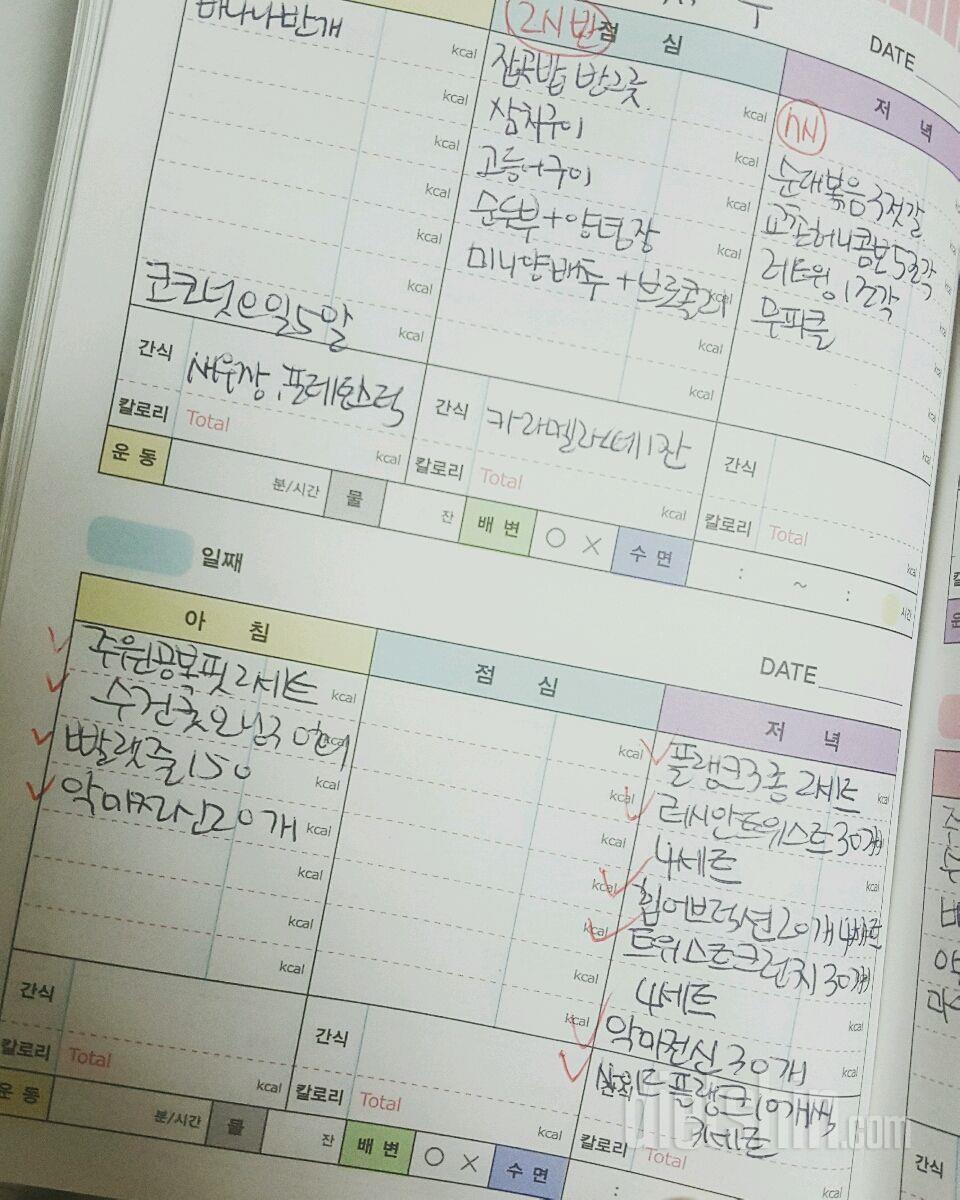 DATE
바나나반개
kcal
코코넛오일5알
간식
새우깡, 프레첼스틱
칼로리 Total kcal
2시반
점 심
잡곡밥 반그릇
삼치구이
고등어구이
순두부+양념장
미니양배추+브로콜리
간식
카라멜라떼1잔
칼로리 Total kcal
저 녁
순대볶음3젓갈
교촌허니콤보5조각
레드윙,1조각
무피클
간식
칼로리 Total kcal
운 동 분/시간 물 잔 배 변 ○ × 수 면 : ~ : 시간
일째
DATE
아 침
주원공복핏2세트
수건
빨랫줄150
악마전신20개
간식
칼로리 Total kcal
점 심
간식
칼로리 Total kcal
저 녁
플랭크3종2세트
러시안트위스트30개
4세트
힙어브덕션20개4세트
트위스트크런치30개
4세트
악마전신30개
사이드플랭크10개씩
간식
칼로리 Total
운 동 분/시간 물 잔 배 변 ○ × 수 면 :
간식